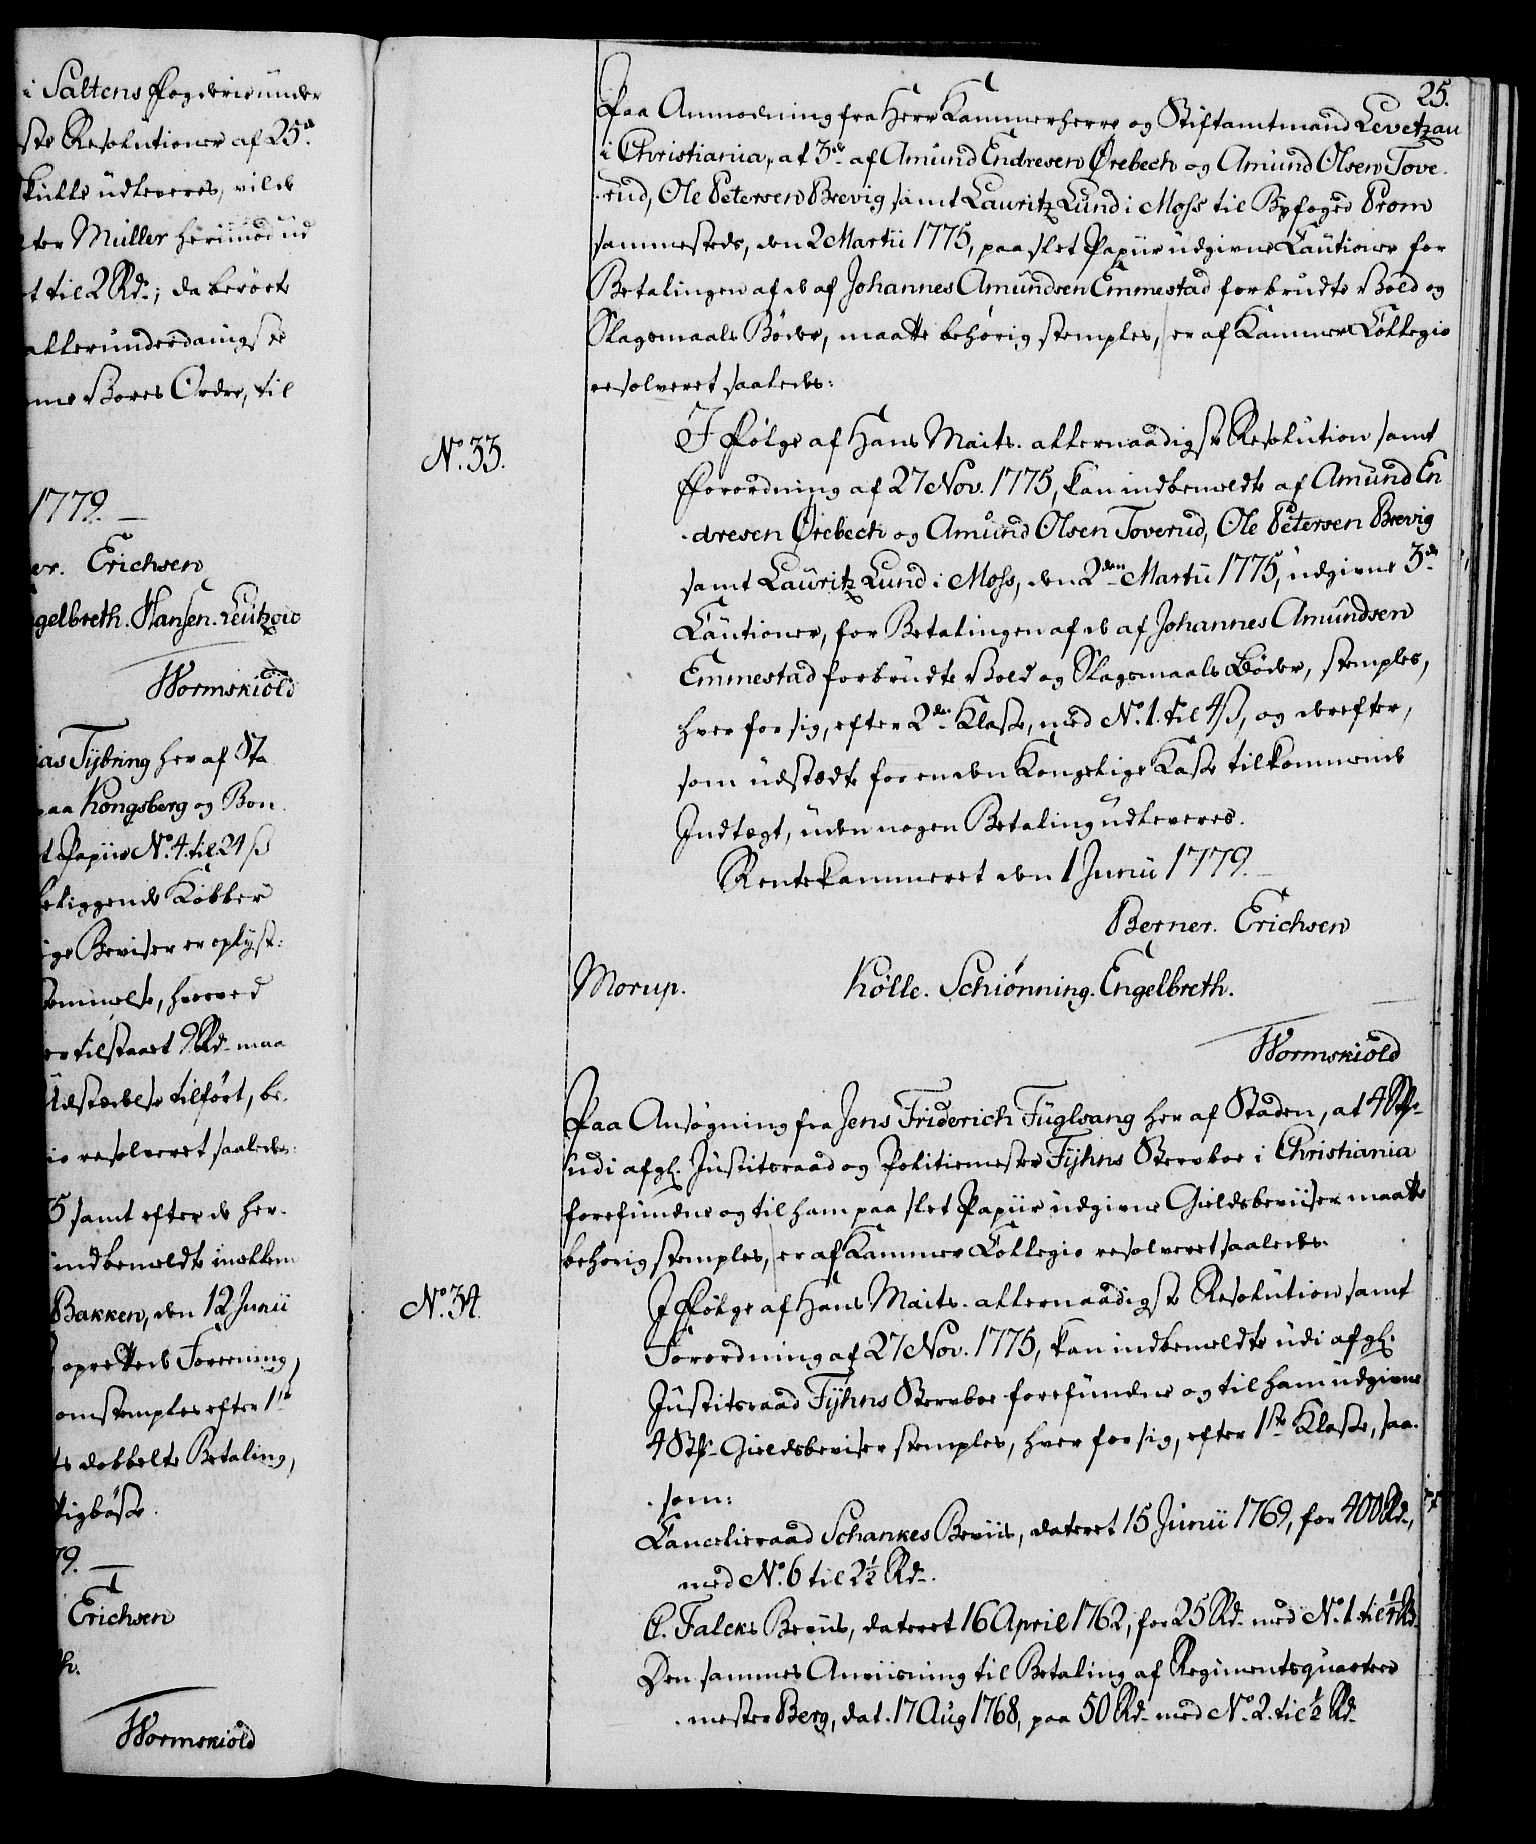 i Saltens Fogderie under
ste Resolutioner af 25de
skulle udleveres, vilde
ter Müller herimod ud
t til 2 Rd; da berørte
allerunderdanigste
me Vores Ordre, til
1779. —
er. Erichsen
gelbreth. Hansen. Leützow
Wormskiold
ias Tÿbring her af Sta
paa Kongsberg og Bon
t Papiir No. 4. til 24 ß
beliggende Kobber
ige Beviser er oplyst:
temmelse, hvorved
er tilstaaet 9 Rd maa
Udstædelse tilført, be-
io resolveret saaledes:
75 samt efter de her-
indbemeldte imellem
Bakken, den 12 Junii
oprettede Forening,
omstemples efter 1ste
ts dobbelte Betaling,
ttigbøsse.
79. —
Erichsen
h.
Wormskiold
25.
Paa Anmodning fra Herr Kammerherre og Stiftamtmand Levetzau
i Christiania, at 3de af Amund Endresen Ørebech og Amund Olsen Tove-
rud, Ole Petersen Brevig samt Lauritz Lund i Moss til Byfoged Prom
sammesteds, den 2 Martii 1775, paa slet Papiir udgivne Cautioner for
Betalingen af de af Johannes Amundsen Emmestad forbrudte Vold og
Slagsmaals Bøder, maatte behørig stemples, er af Kammer Collegio
resolveret saaledes:
No. 33.
I Følge af Hans Maits. allernaadigste Resolution samt
Forordning af 27 Nov. 1775, kan indbemeldte af Amund En
dresen Ørebech og Amund Olsen Toverud, Ole Petersen Brevig
samt Lauritz Lund i Moss, den 2den Martii 1775, udgivne 3de
Cautioner, for Betalingen af de af Johannes Amundsen
Emmestad forbrudte Vold og Slagsmaals Bøder, stemples,
hver for sig, efter 2den Klasse, med No. 1. til 4 ß, og derefter,
som udstædte for en den Kongelige Kasse tilkommende
Indtægt, uden nogen Betaling udleveres.
Rentekammeret den 1 Junii 1779. —
Berner. Erichsen
Morup. Kølle. Schiønning. Engelbreth.
Wormskiold
Paa Ansøgning fra Jens Friderich Fuglsang her af Staden, at 4 Stk
udi afg. Justitsraad og Politiemester Fÿhns Sterboe i Christiania
forefundne og til ham paa slet Papiir udgivne Gieldsbeviiser maatte
behørig stemples, er af Kammer Collegio resolveret saaledes.
No. 34.
I Følge af Hans Maits. allernaadigste Resolution samt
Forordning af 27 Nov. 1775, kan indbemeldte udi afg.
Justitsraad Fÿhns Sterboe forefundne og til ham udgivne
4 Stk Gieldsbeviser stemples, hver for sig, efter 1ste Klasse, saa-
som:
Cancelieraad Schankes Beviis, dateret 15 Junii 1769, for 400 Rd,
med No. 6 til 2½ Rd.
C. Falcks Beviis, dateret 16 April 1762, for 25 Rd med No. 1. til ¼ Rd.
Den sammes Anviisning til Betaling af Regimentsquarteer
mester Berg, dat. 17 Aug 1768, paa 50 Rd med No. 2. til ½ Rd